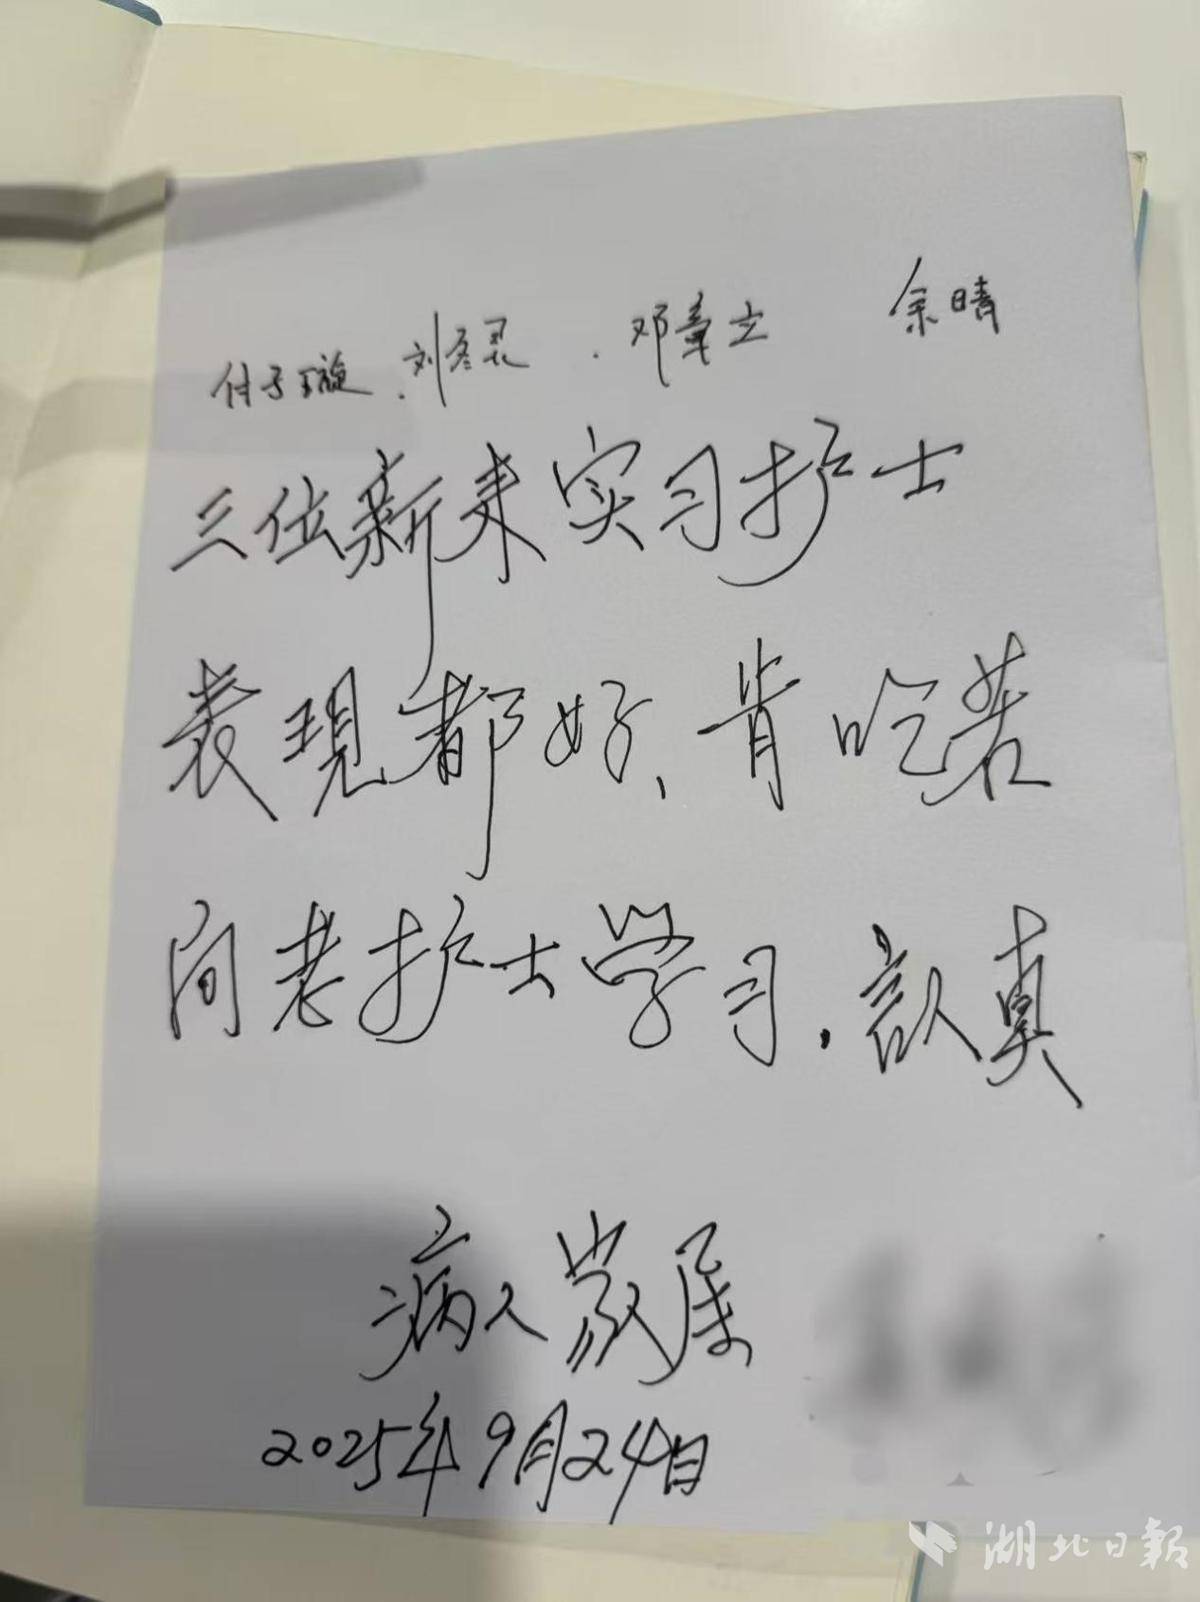 付子璇、刘冬灵、邓章立 余晴
三位新来实习护士
表现都好、肯吃苦
向老护士学习,認真
病人家属
2025年9月24日
湖北日報